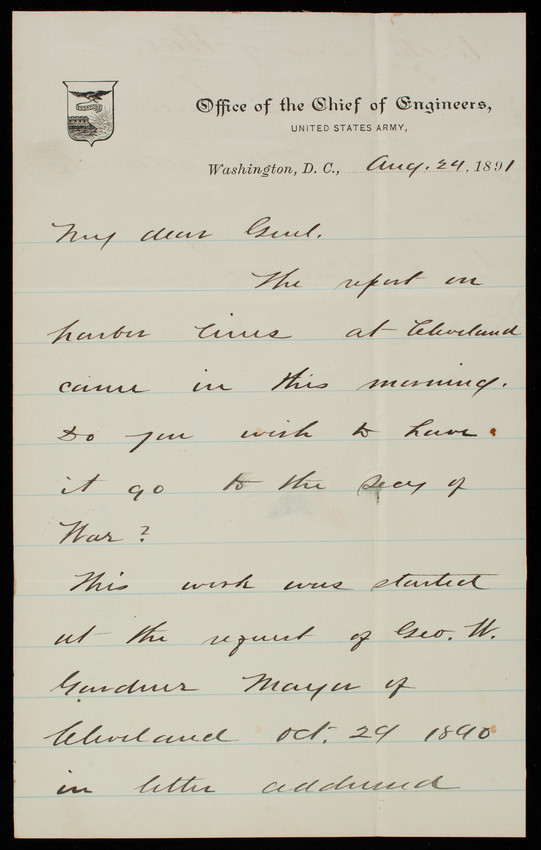 Office of the Chief of Engineers,
UNITED STATES ARMY,
Washington, D. C., Aug. 24, 1891
My dear Genl.
The report on
harbor lines at Cleveland
came in this morning.
Do you wish to have
it go to the Secy of
War?
This work was started
at the request of Geo. W.
Gardner Mayor of
Cleveland Oct. 29 1890
in letter addressed